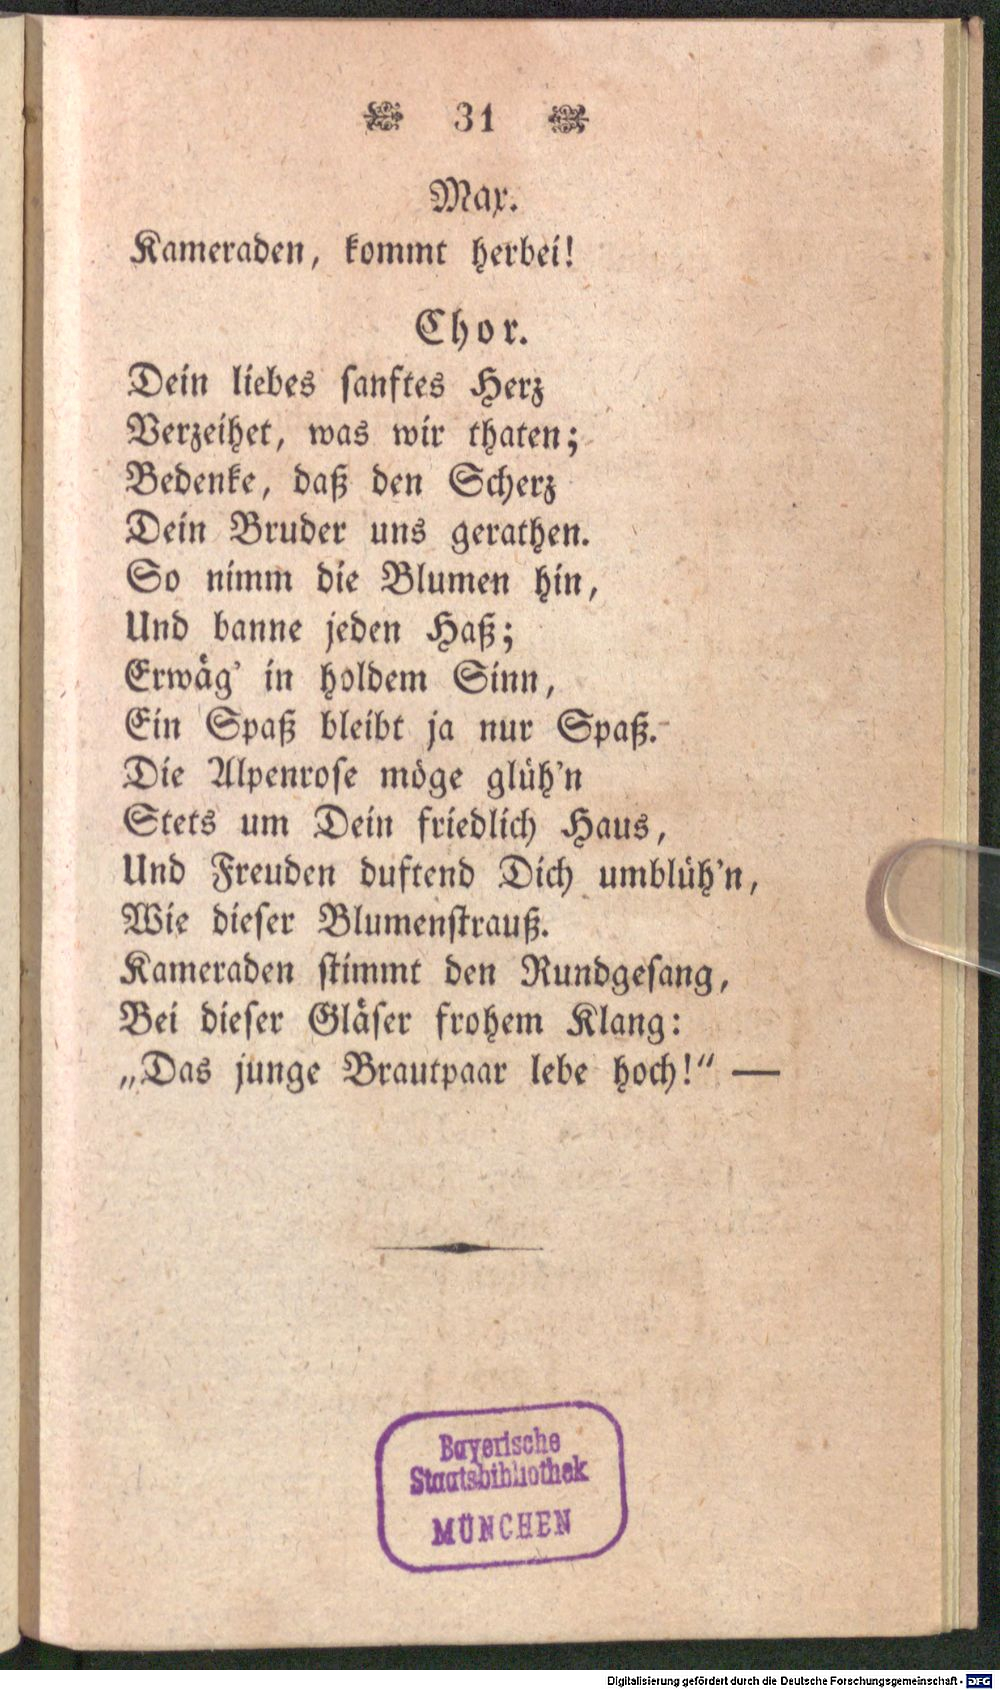 31
Max.
Kameraden, kommt herbei!
Chor.
Dein liebes sanftes Herz
Verzeihet, was wir thaten;
Bedenke, daß den Scherz
Dein Bruder uns gerathen.
So nimm die Blumen hin,
Und banne jeden Haß;
Erwäg' in holdem Sinn,
Ein Spaß bleibt ja nur Spaß.
Die Alpenrose möge glüh'n
Stets um Dein friedlich Haus,
Und Freuden duftend Dich umblüh'n,
Wie dieser Blumenstrauß.
Kameraden stimmt den Rundgesang,
Bei dieser Gläser frohem Klang:
„Das junge Brautpaar lebe hoch!“ —
Bayerische
Staatsbibliothek
MÜNCHEN
Digitalisierung gefördert durch die Deutsche Forschungsgemeinschaft - DFG